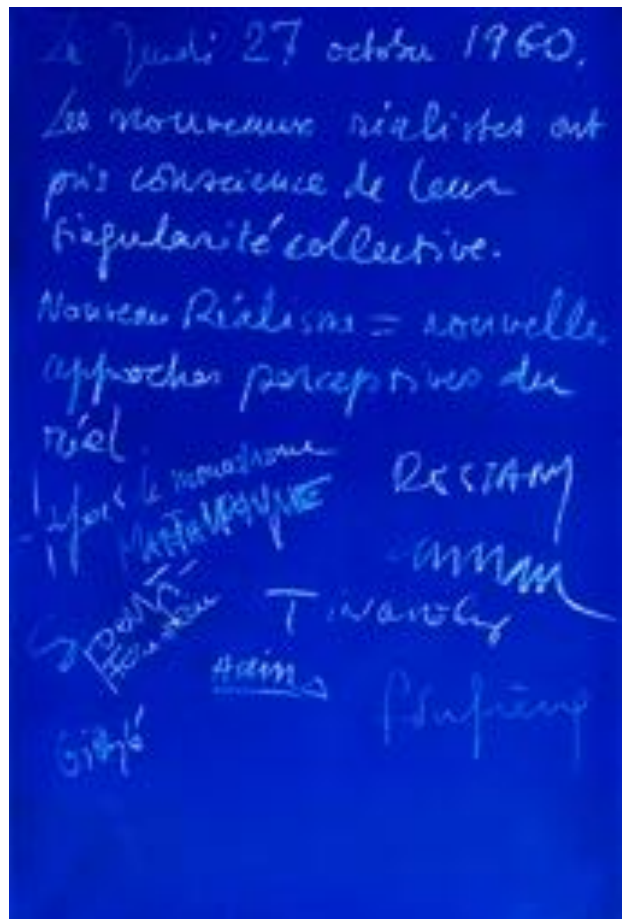 Le Jeudi 27 octobre 1960.
Les nouveaux réalistes ont
pris conscience de leur
singularité collective.
Nouveau Réalisme = nouvelles
approches perceptives du
réel.
Yves le monochrome
RESTANY
Arman
Tinguely
Hains
Dufrêne